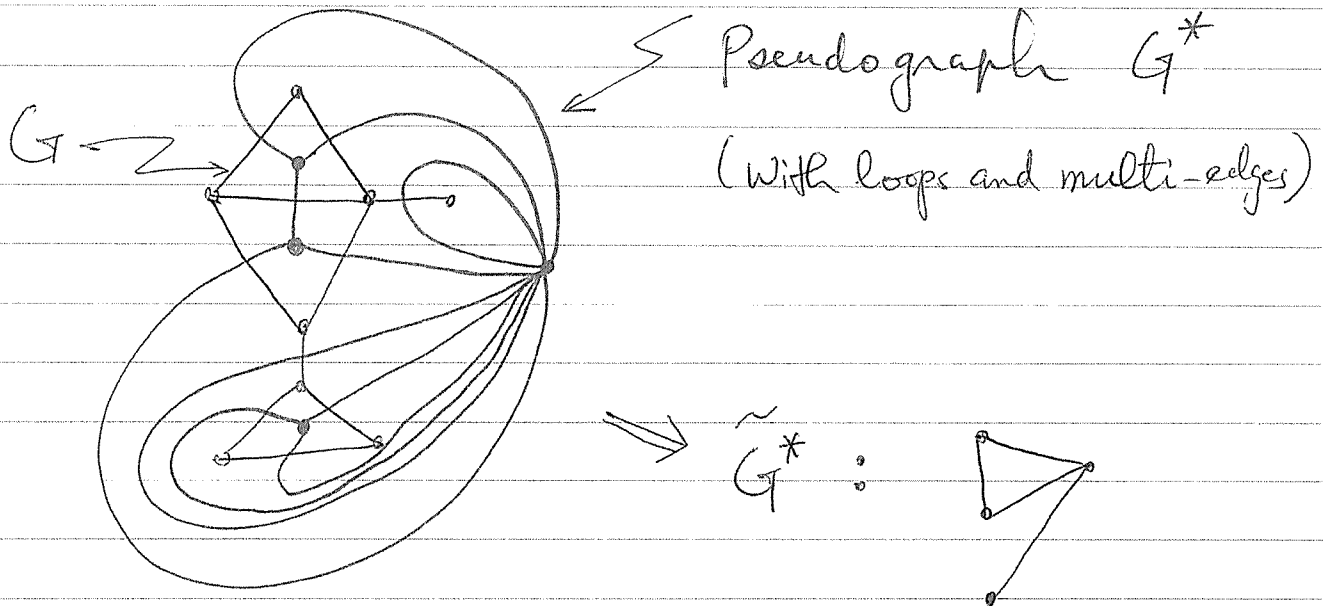 Pseudograph G*
G
(with loops and multi-edges)
G̃* :